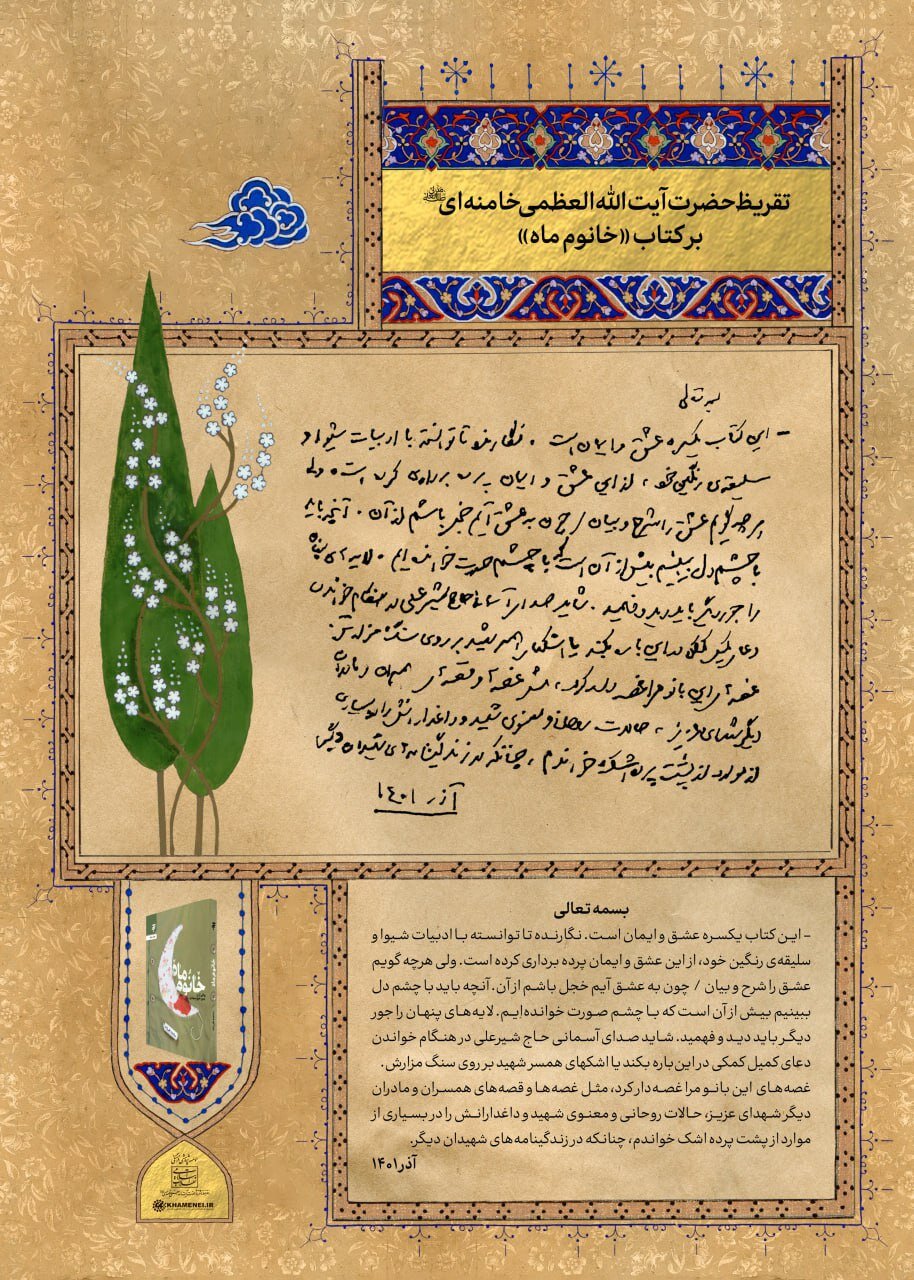 تقریظ حضرت آیت الله العظمی خامنه‌ای
بر کتاب «خانوم ماه»
بسمه تعالی
- این کتاب یکسره عشق و ایمان است. نگارنده تا توانسته با ادبیات شیوا و
سلیقه‌ی رنگین خود، از این عشق و ایمان پرده برداری کرده است. ولی
هرچه گویم عشق را شرح و بیان / چون به عشق آیم خجل باشم از آن. آنچه باید
با چشم دل ببینیم بیش از آن است که با چشم صورت خوانده‌ایم. لایه‌های پنهان
را جور دیگر باید دید و فهمید. شاید صدای آسمانی حاج شیرعلی در هنگام خواندن
دعای کمیل کمکی در این باره بکند یا اشکهای همسر شهید بر روی سنگ مزارش.
غصه‌های این بانو مرا غصه‌دار کرد، مثل غصه‌ها و قصه‌های همسران و مادران
دیگر شهدای عزیز، حالات روحانی و معنوی شهید و داغدارانش را در بسیاری
از موارد از پشت پرده اشک خواندم، چنانکه در زندگینامه‌های شهیدان دیگر
آذر ۱۴۰۱
بسمه تعالی
- این کتاب یکسره عشق و ایمان است. نگارنده تا توانسته با ادبیات شیوا و
سلیقه‌ی رنگین خود، از این عشق و ایمان پرده برداری کرده است. ولی هرچه گویم
عشق را شرح و بیان / چون به عشق آیم خجل باشم از آن. آنچه باید با چشم دل
ببینیم بیش از آن است که با چشم صورت خوانده‌ایم. لایه‌های پنهان را جور
دیگر باید دید و فهمید. شاید صدای آسمانی حاج شیرعلی در هنگام خواندن
دعای کمیل کمکی در این باره بکند یا اشکهای همسر شهید بر روی سنگ مزارش.
غصه‌های این بانو مرا غصه‌دار کرد، مثل غصه‌ها و قصه‌های همسران و مادران
دیگر شهدای عزیز، حالات روحانی و معنوی شهید و داغدارانش را در بسیاری از
موارد از پشت پرده اشک خواندم، چنانکه در زندگینامه‌های شهیدان دیگر.
آذر ۱۴۰۱
خانوم ماه
خانوم ماه
KHAMENEI.IR